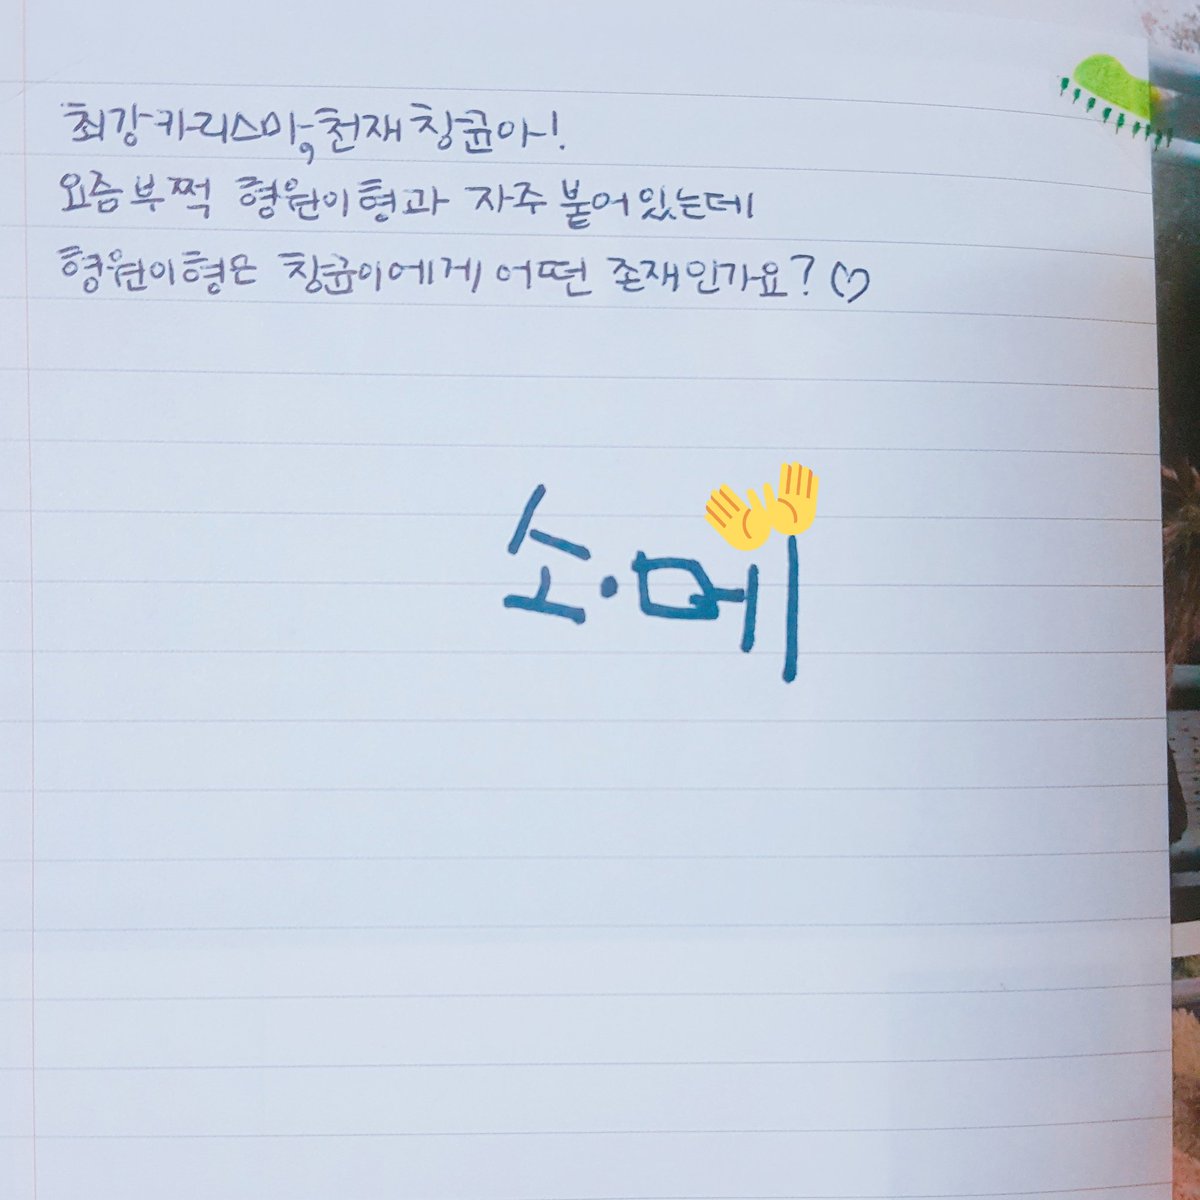 최강카리스마, 천재 창균아!
요즘 부쩍 형원이형과 자주 붙어있는데
형원이형은 창균이에게 어떤 존재인가요?♡
소·메